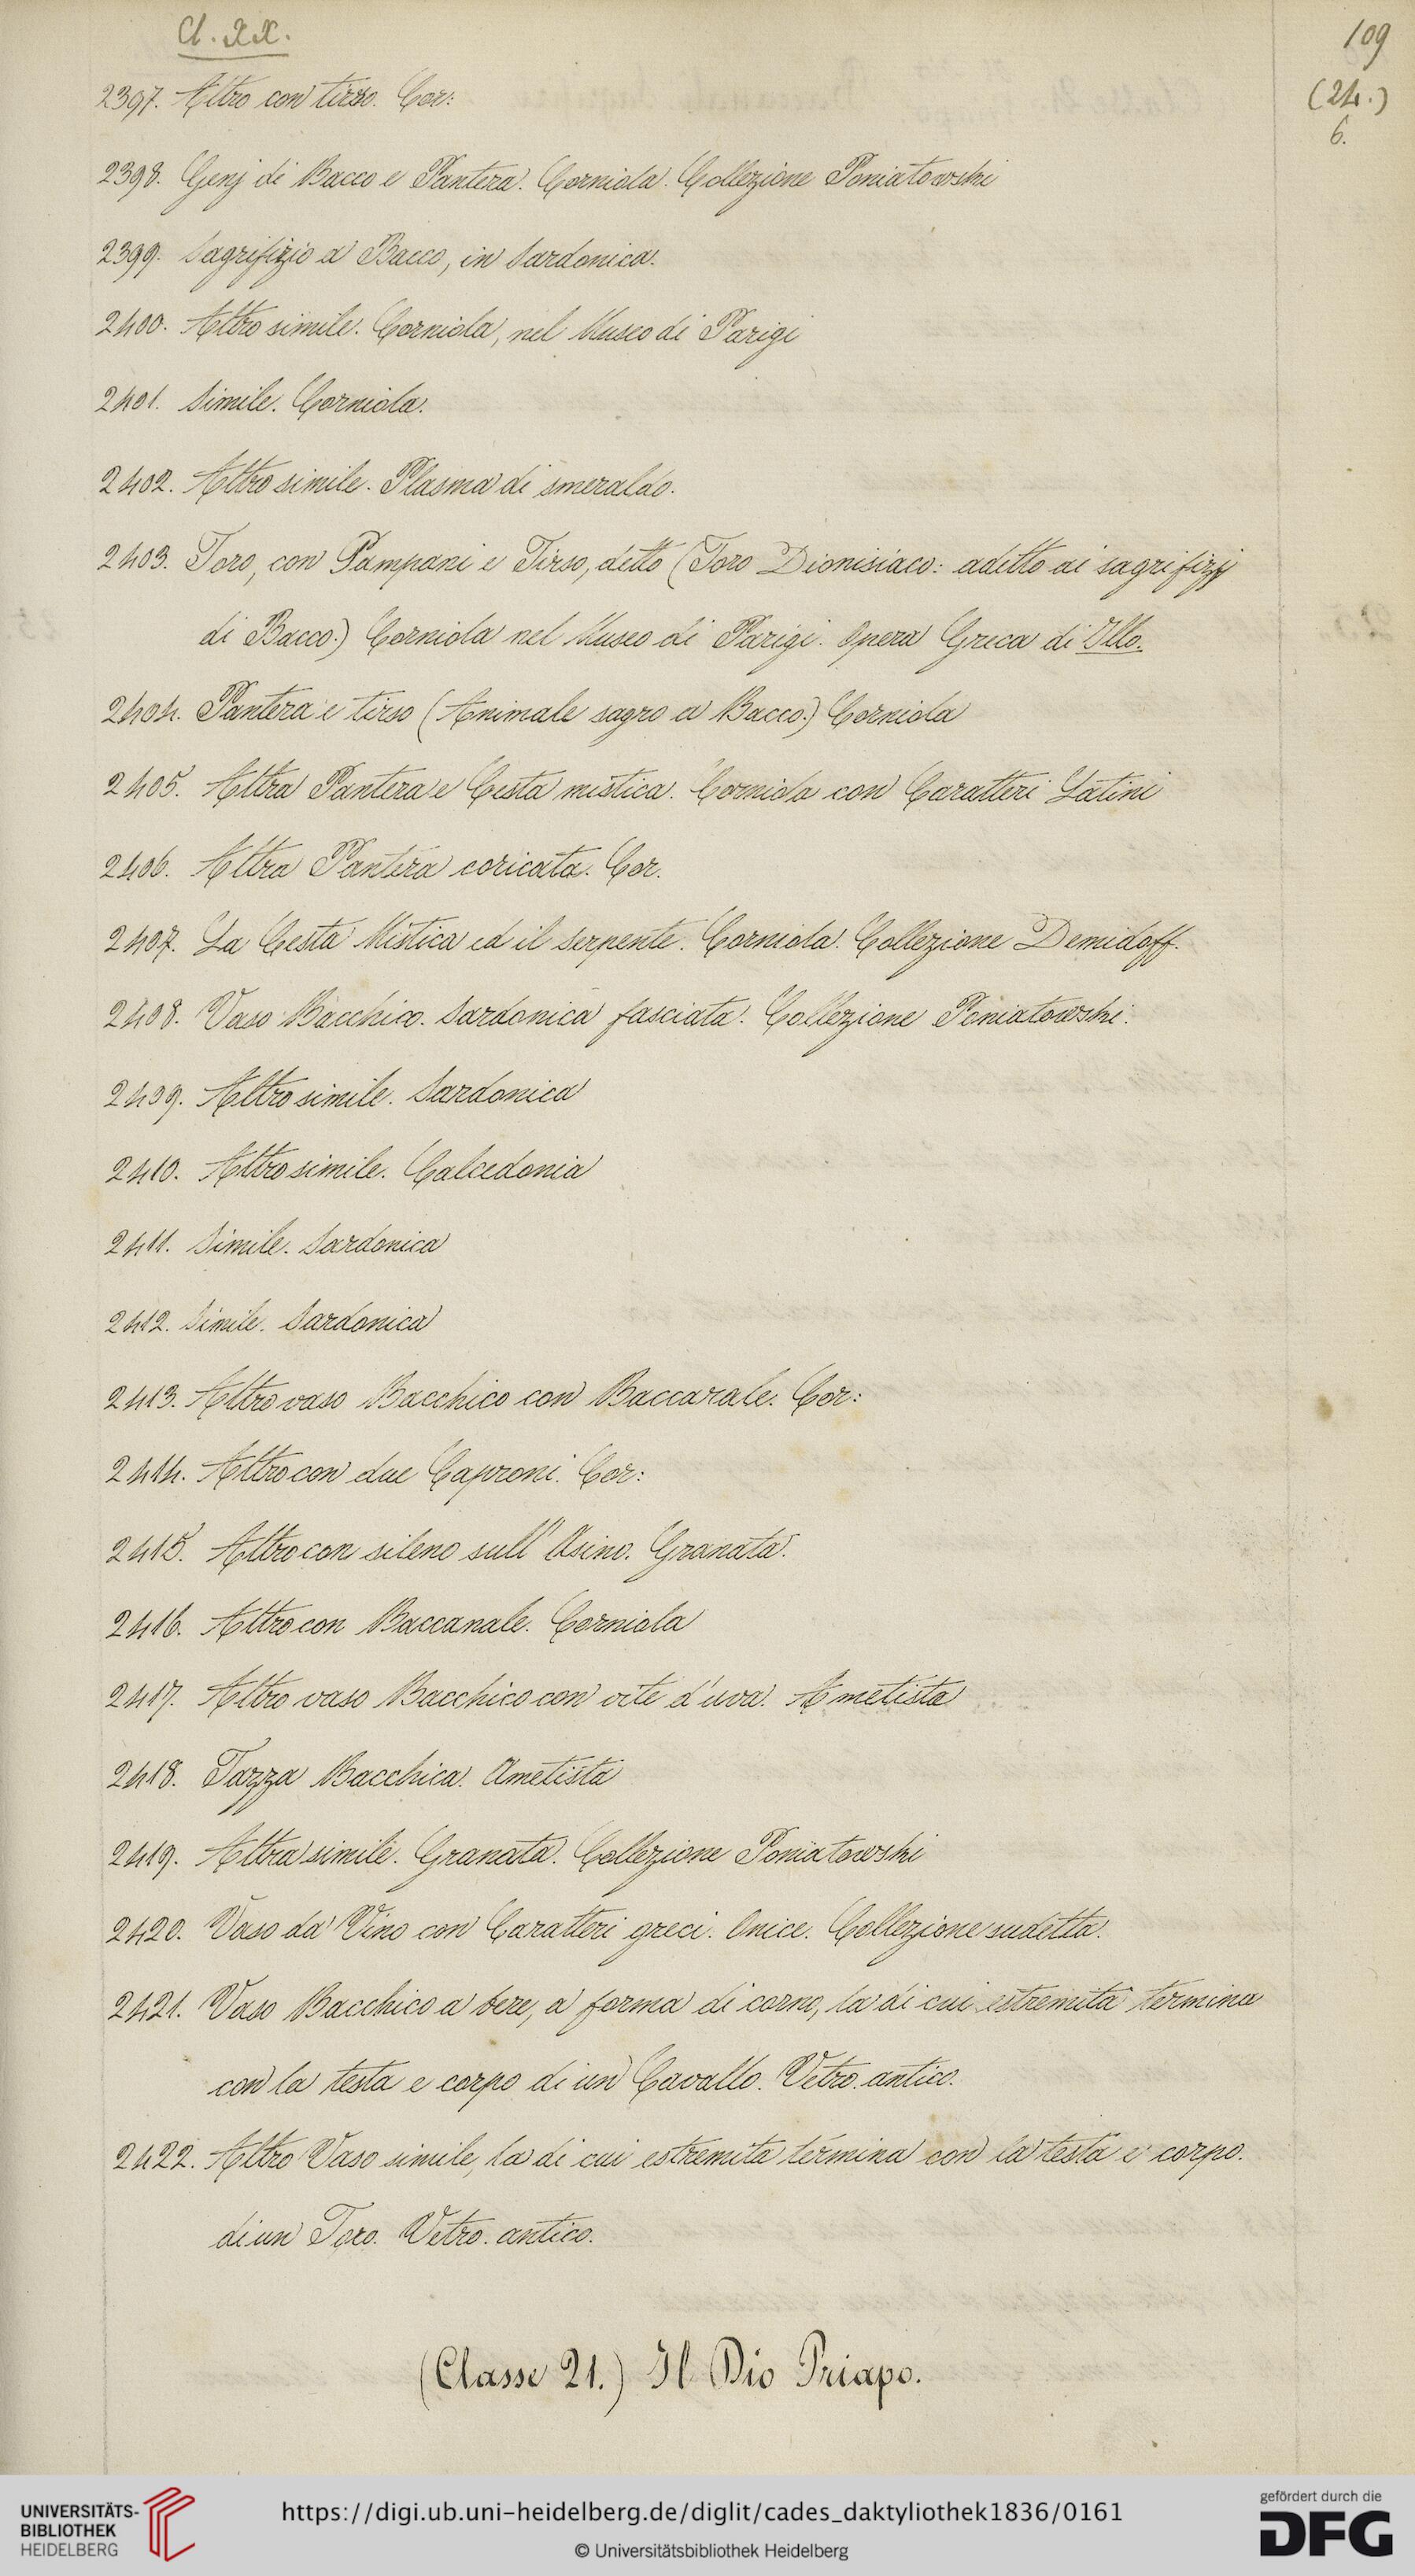 Cl. XX.
109
(24.)
6.
2397. Altro con tirso. Cor:
2398. Genj di Bacco e Pantera. Corniola. Collezione Poniatowski
2399. Sagrifizio a Bacco, in Sardonica.
2400. Altro simile. Corniola, nel Museo di Parigi
2401. Simile. Corniola.
2402. Altro simile. Plasma di smeraldo.
2403. Toro, con Pampani e Tirso, detto (Toro Dionisiaco: aditto ai sagrifizj
di Bacco.) Corniola nel Museo di Parigi. Opera Greca di Illo.
2404. Pantera e tirso (Animale sagro a Bacco.) Corniola
2405. Altra Pantera e Cesta mistica. Corniola con Caratteri Latini
2406. Altra Pantera coricata. Cor.
2407. La Cesta Mistica ed il serpente. Corniola. Collezione Demidoff.
2408. Vaso Bacchico. Sardonica fasciata. Collezione Poniatowski.
2409. Altro simile. Sardonica
2410. Altro simile. Calcedonia
2411. Simile. Sardonica
2412. Simile. Sardonica
2413. Altro vaso Bacchico con Baccarale. Cor:
2414. Altro con due Caproni. Cor:
2415. Altro con sileno sull' Asino. Granata.
2416. Altro con Baccanale. Corniola
2417. Altro vaso Bacchico con vite d'uva. Ametista
2418. Tazza Bacchica. Ametista
2419. Altra simile. Granata. Collezione Poniatowski
2420. Vaso da Vino con Caratteri greci. Onice. Collezione sudetta.
2421. Vaso Bacchico a bere, a forma di corno, la di cui estremità termina
con la testa e corpo di un Cavallo. Vetro antico.
2422. Altro Vaso simile, la di cui estremita termina con la testa e corpo.
di un Toro. Vetro. antico.
(Classe 21.) Il Dio Priapo.
UNIVERSITÄTS-
BIBLIOTHEK
HEIDELBERG
https://digi.ub.uni-heidelberg.de/diglit/cades_daktyliothek1836/0161
© Universitätsbibliothek Heidelberg
gefördert durch die
DFG